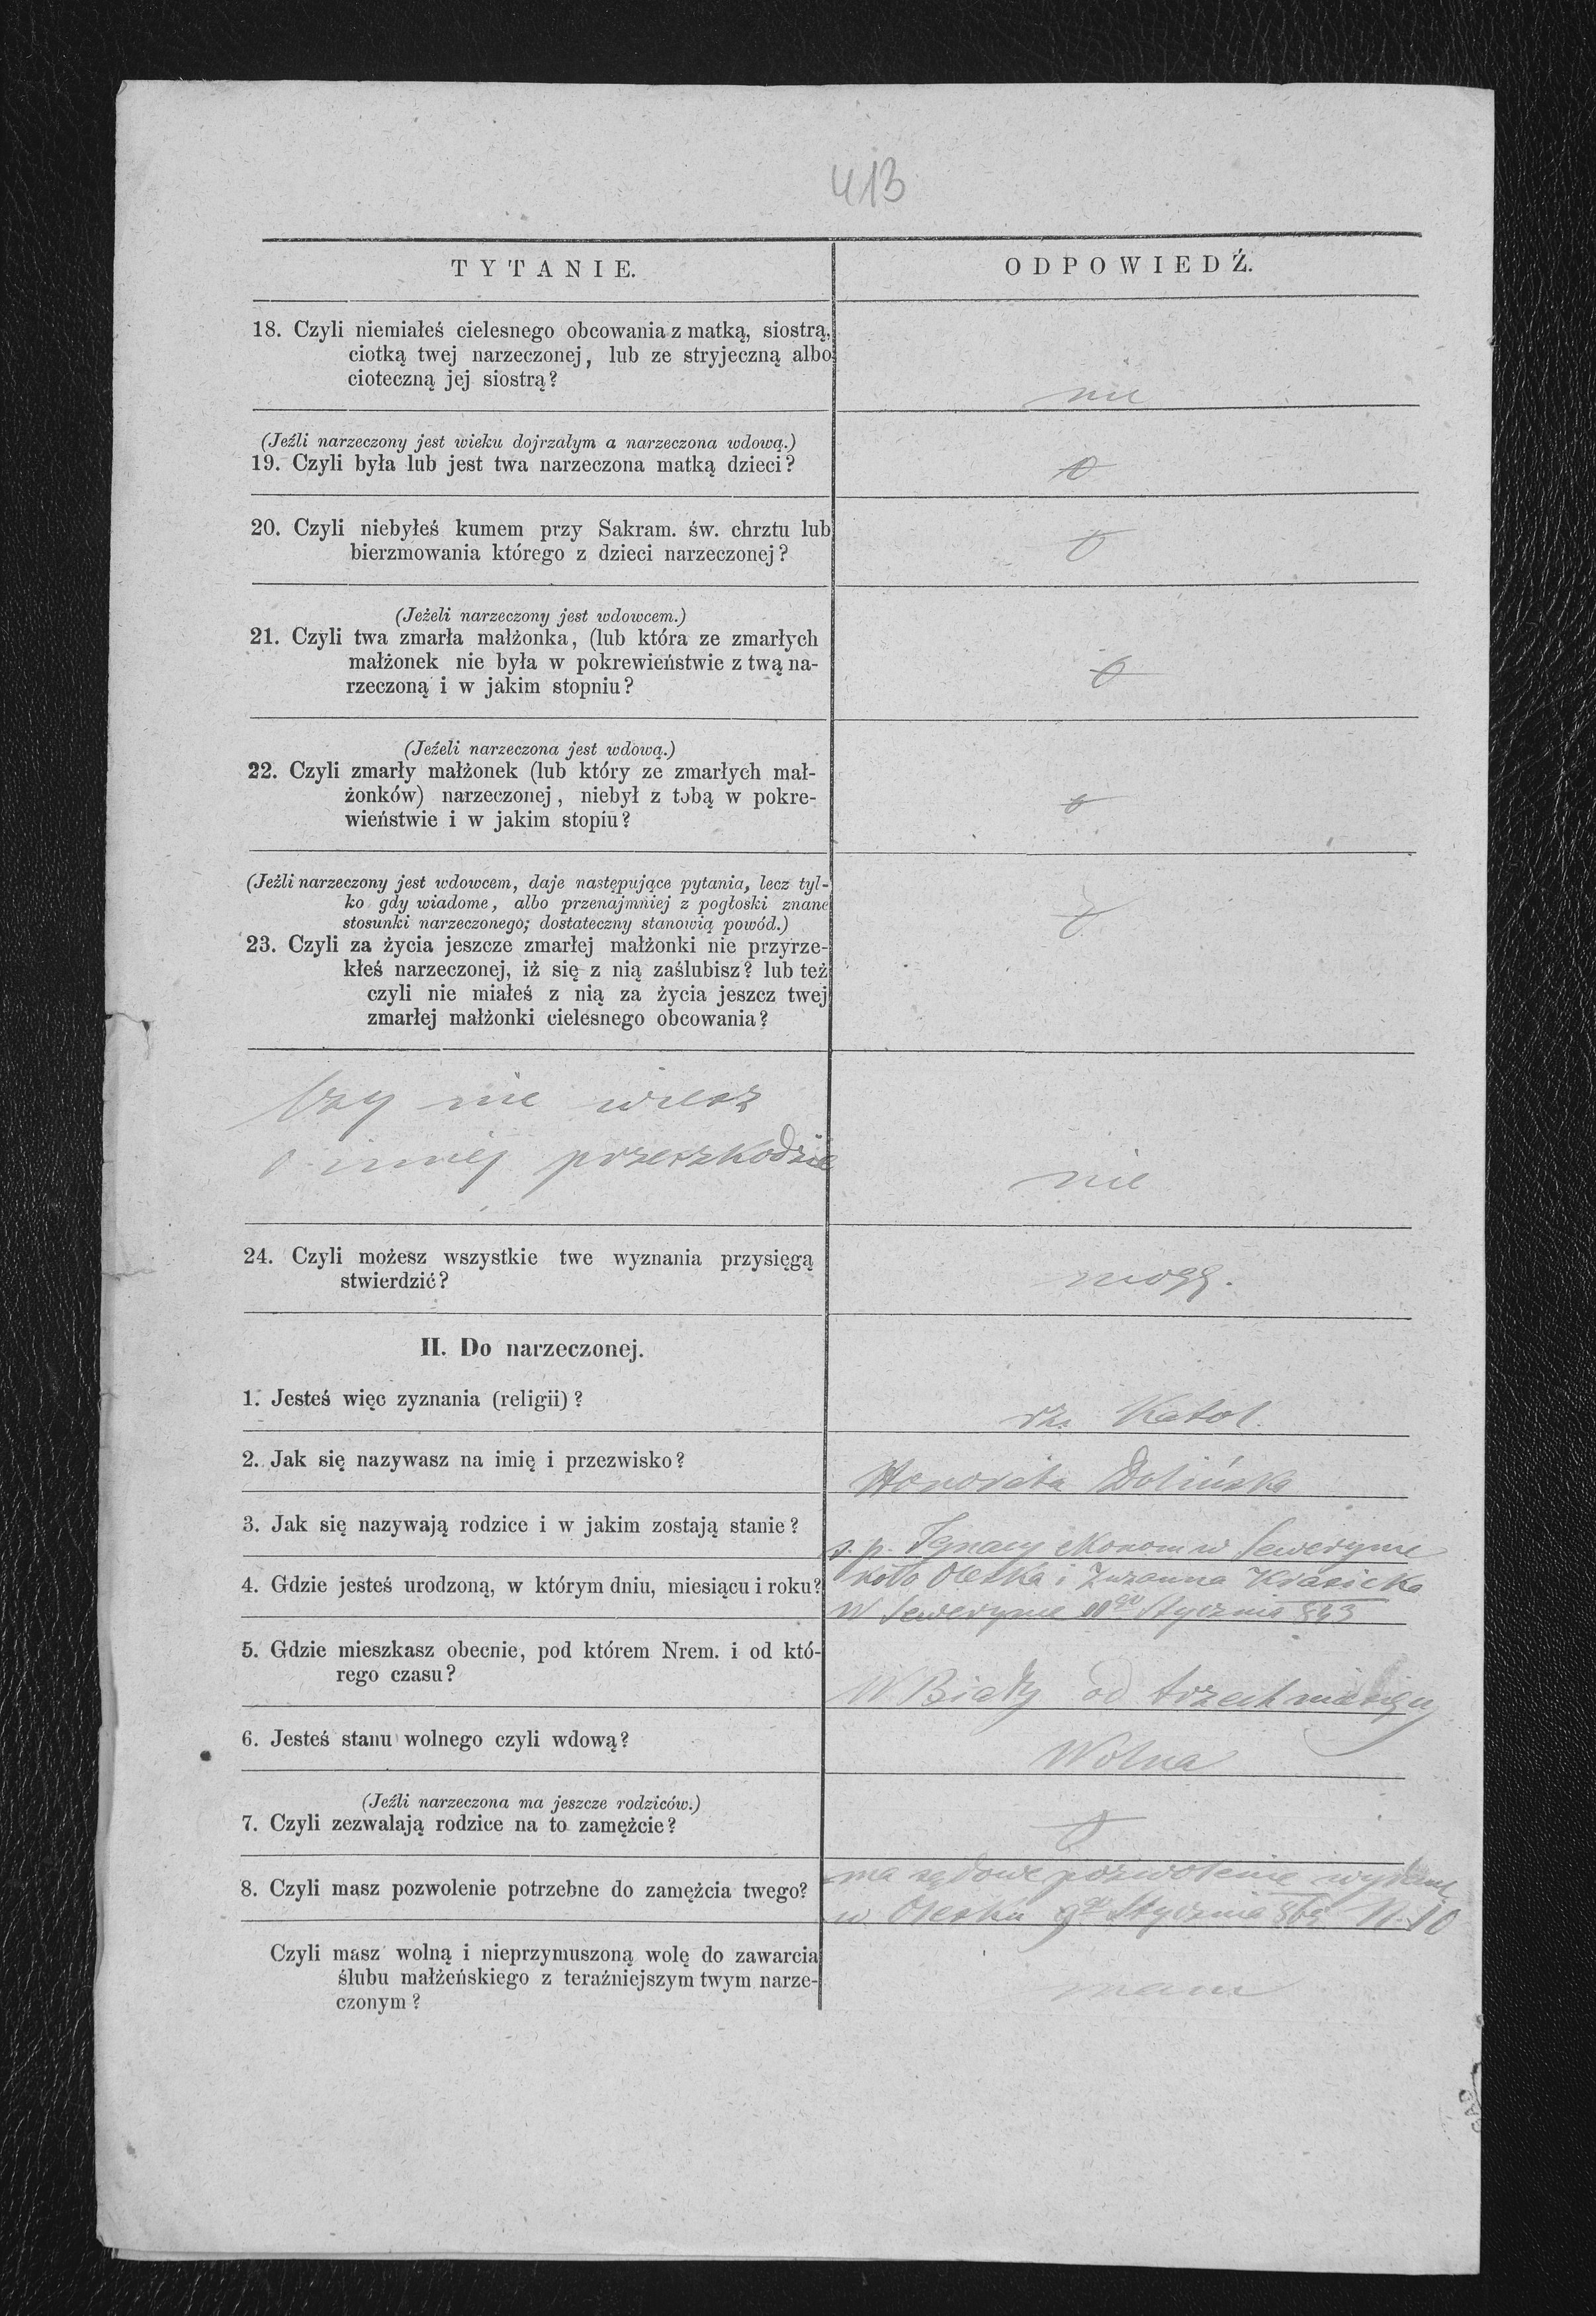 413
TYTANIE.
ODPOWIEDŹ.
18. Czyli niemiałeś cielesnego obcowania z matką, siostrą,
ciotką twej narzeczonej, lub ze stryjeczną albo
cioteczną jej siostrą?
nie
(Jeźli narzeczony jest wieku dojrzałym a narzeczona wdową.)
19. Czyli była lub jest twa narzeczona matką dzieci?
20. Czyli niebyłeś kumem przy Sakram. św. chrztu lub
bierzmowania którego z dzieci narzeczonej?
(Jeżeli narzeczony jest wdowcem.)
21. Czyli twa zmarła małżonka, (lub która ze zmarłych
małżonek nie była w pokrewieństwie z twą na-
rzeczoną i w jakim stopniu?
(Jeżeli narzeczona jest wdową.)
22. Czyli zmarły małżonek (lub który ze zmarłych mał-
żonków) narzeczonej, niebył z tobą w pokre-
wieństwie i w jakim stopiu?
(Jeźli narzeczony jest wdowcem, daje następujące pytania, lecz tyl-
ko gdy wiadome, albo przenajmniej z pogłoski znane
stosunki narzeczonego; dostateczny stanowią powód.)
23. Czyli za życia jeszcze zmarłej małżonki nie przyrze-
kłeś narzeczonej, iż się z nią zaślubisz? lub też
czyli nie miałeś z nią za życia jeszcz twej
zmarłej małżonki cielesnego obcowania?
Czy nie wiesz
o innej przeszkodzie
nie
24. Czyli możesz wszystkie twe wyznania przysięgą
stwierdzić?
mogę.
II. Do narzeczonej.
1. Jesteś więc zyznania (religii)?
rz. Katol.
2. Jak się nazywasz na imię i przezwisko?
Honorata Dolińska
3. Jak się nazywają rodzice i w jakim zostają stanie?
s. p. Ignacy ekonom w Seweryne
4. Gdzie jesteś urodzoną, w którym dniu, miesiącu i roku?
koło Oleska i Zuzanna Krasicka
w Seweryne Stycznia 843
5. Gdzie mieszkasz obecnie, pod którem Nrem. i od któ-
rego czasu?
W Biały od trzech miesięcy
6. Jesteś stanu wolnego czyli wdową?
Wolna
(Jeźli narzeczona ma jeszcze rodziców.)
7. Czyli zezwalają rodzice na to zamężcie?
8. Czyli masz pozwolenie potrzebne do zamężcia twego?
ma sądowe pozwolenie wydane
w Olesku 9go Stycznia N. 10
Czyli masz wolną i nieprzymuszoną wolę do zawarcia
ślubu małżeńskiego z teraźniejszym twym narze-
czonym?
mam